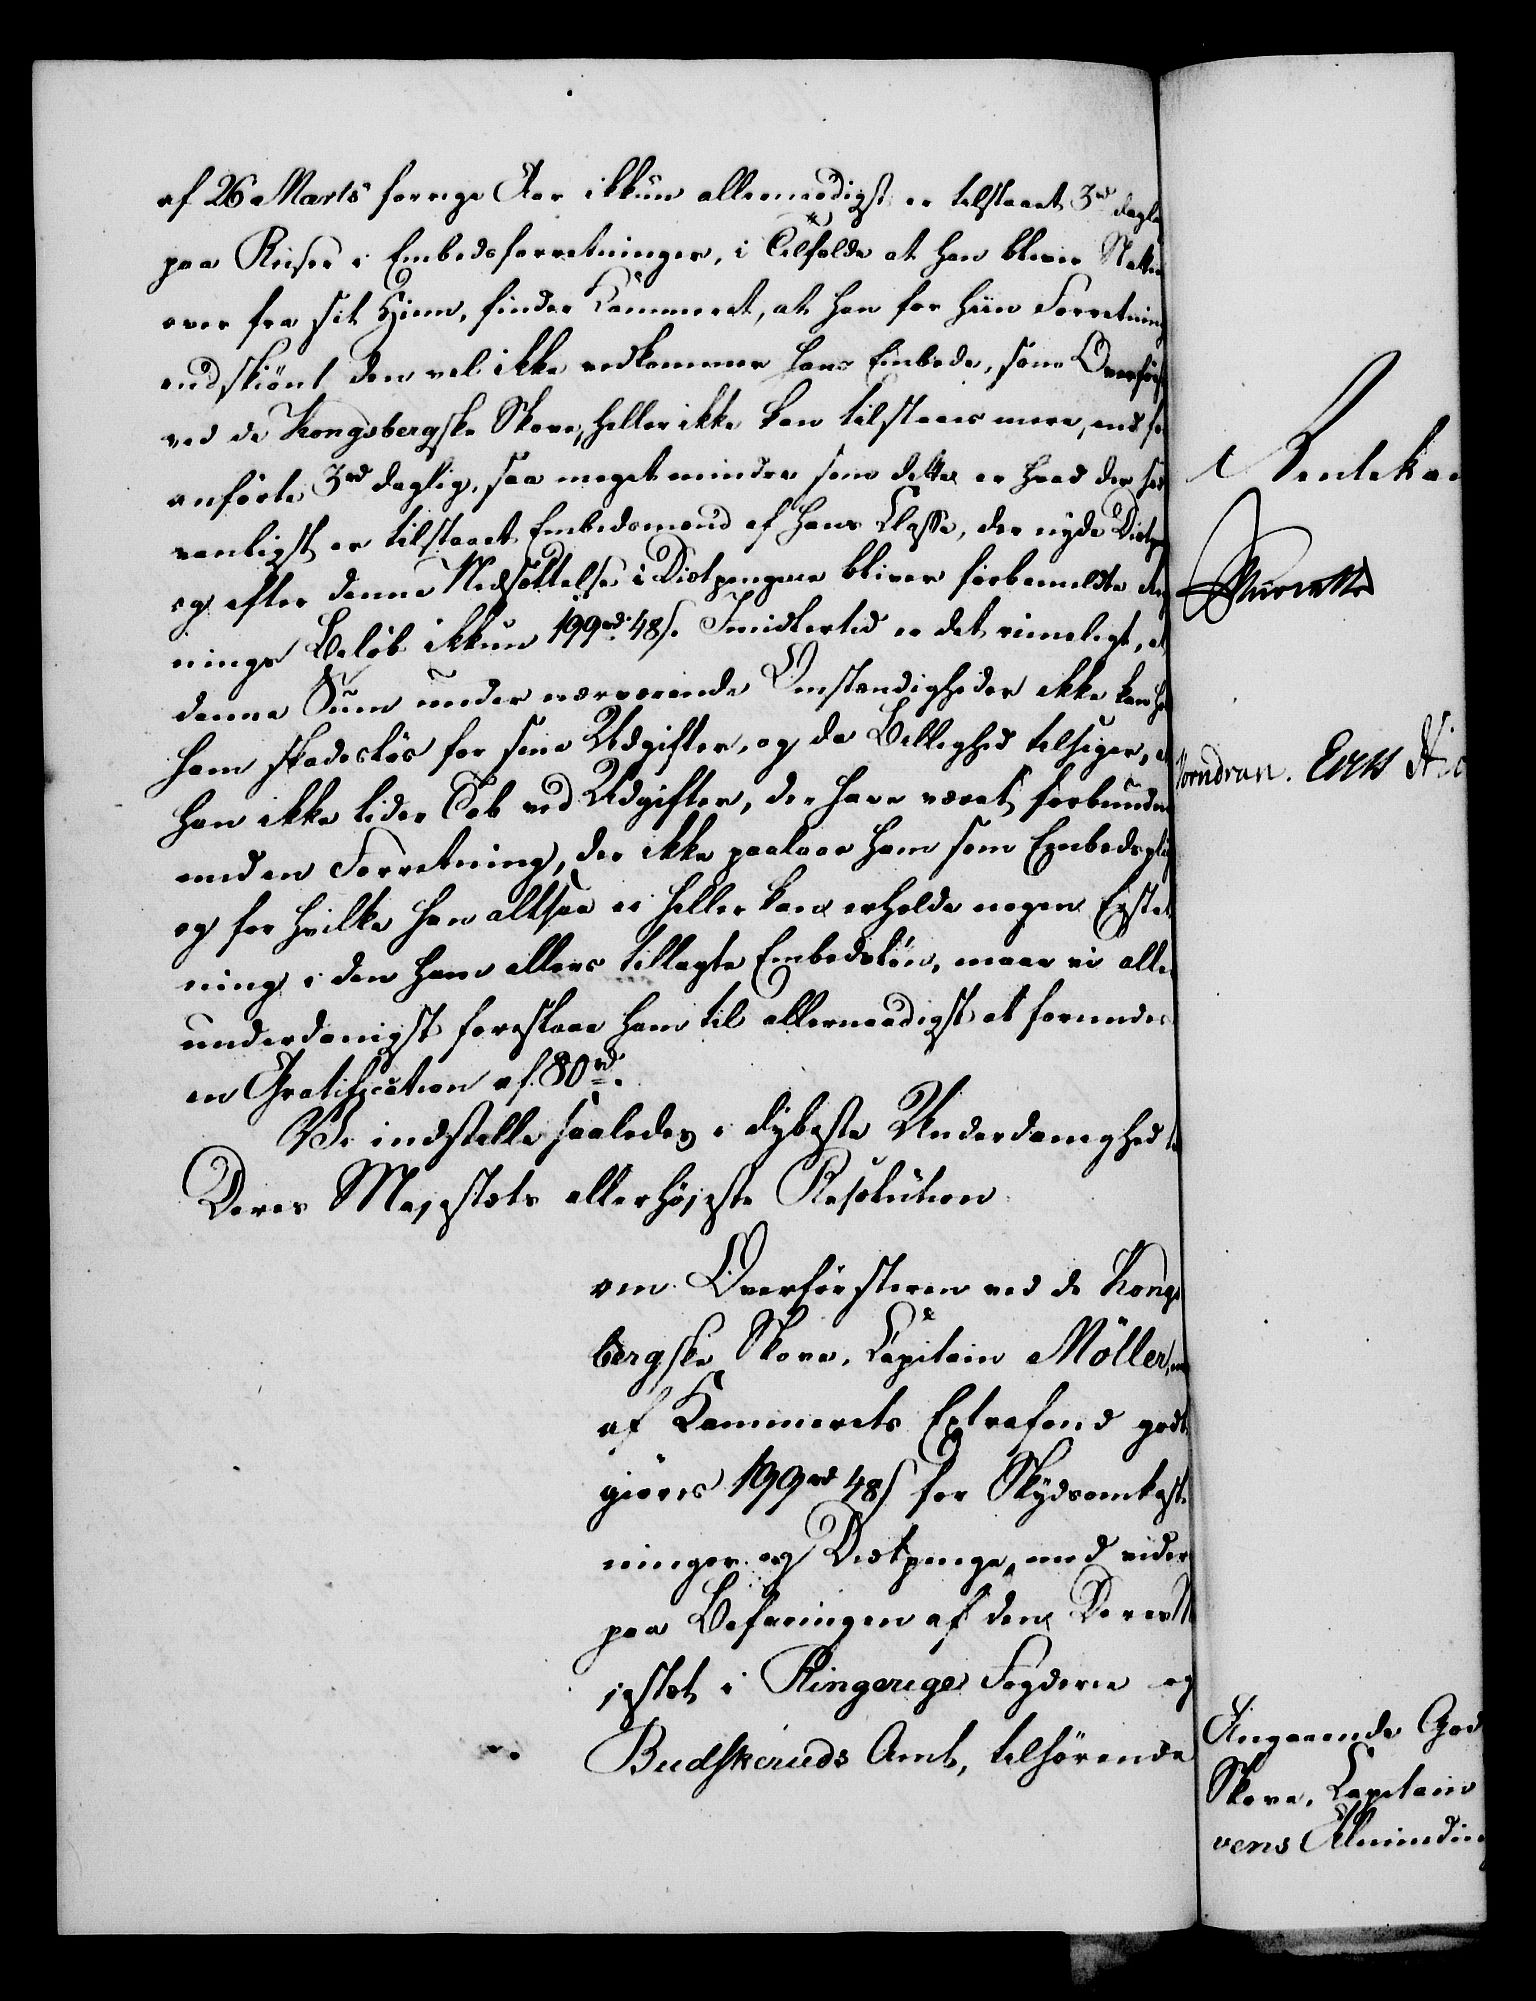 af 26 Marts forrige Aar ikkun allernaadigst er tilstaaet 3rd dagl
paa Reiser i Embedsforretninger, i Tilfælde at han bliver Natten
over fra sit Hiem, finder Kammeret, at han for hiin Forretning
endskiönt den vel ikke vedkommer hans Embede, som Overförst
ved de Kongsbergske Skove, heller ikke kan tilstaaes mere, end
anförte 3rd daglig, saa meget mindre som dette er hvad der
vanligst er tilstaaet Embedsmænd af hans Classe, der nyde Diætpen
og efter denne Nedsættelse i Diætpengene bliver forbemeldte
nings Belöb ikkun 199rd 48s. Imidlertid er det rimeligt, at
denne Sum under nærværende Omstændigheder ikke kan
ham skadeslös for sine Udgifter, og da Billighed tilsiger, at
han ikke lider Tab ved Udgifter, der have været forbundne
med en Forretning, der ikke paalaae ham som Embedspligt
og for hvilke han altsaa ei heller kan erholde nogen Erstat
ning i den ham ellers tillagte Embedslön, maae vi aller
underdanigst foreslaae ham til allernaadigst at forundes
en Gratification af 80rd.
Vi indstille saaledes i dybeste Underdanighed til
Deres Majestæts allerhöjeste Resolution
om Overförsteren ved de Kongs
bergske Skove, Capitain Möller,
af Kammerets Extrafond godt
giöres 199rd 48s for Skydsomkost
ninger og Diætpenge, med videre
paa Befaringen af den Deres Ma
jestæt i Ringeriges Fogderie og
Budskeruds Amt, tilhörende
Rentekam
Vorndran. Eeks
Angaaende God
Skove, Capitain
vens Alminding